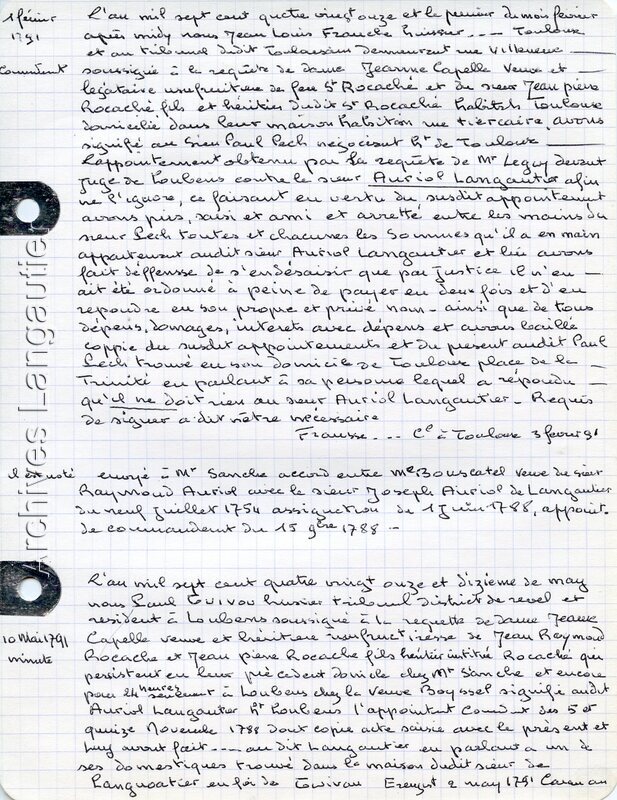 1 février
1791
L'an mil sept cent quatre vingt onze et le premier du mois février
après midy nous Jean Louis Franche huissier --- Toulouse
et au tribunal dudit Toulousain demeurant rue Villeneuve
Commdment
soussigné à la requête de dame Jeanne Capelle Veuve et
légataire usufruitiere de feu Sr Rocaché et du sieur Jean piere
Rocaché fils et héritier dudit Sr Rocaché habitch Toulouse
domicilié dans leur maison habiton rue tiercaire, avons
signifié au Sieu Paul Pech négociant ht de Toulouse
l'appointement obtenu par la requête de Mr Leguy devant
juge de Loubens contre le sieur Auriol Langautier afin
ne l'ignore, ce faisant en vertu du susdit appointement
avons pris, saisi et arretté entre les mains du
sieur Pech toutes et chacunes les Sommes qu'il a en main
appartenant audit sieur Auriol Langautier et lui avons
fait déffensse de s'endésaisir que par justice il n'en
ait été ordonné à peine de payer en deux fois et d'en
repondre en son propre et privé nom - ainsi que de tous
dépens, domages, interets avec dépens et avons baillé
coppie du susdit appointements et du present audit Paul
Pech trouvé en son domicile de Toulouse place de la
Trinité en parlant à sa personne lequel a répondu
qu'il ne doit rien au sieur Auriol Langautier - Requis
de signer a dit n'être nécessaire
Frausse --- Cl à Toulouse 3 fevri 91
Il est noté envoyé à Mr Sanche accord entre Me Bouscatel veuve du sieur
Raymond Auriol avec le sieur Joseph Auriol de Langautier
du neuf juillet 1754 assignation de 1 Juin 1788, appoint.
de commandent du 15 9bre 1788 -
L'an mil sept cent quatre vingt onze et dizième de may
nous Paul huissier tribunal district de revel et
resident à Loubens soussigné à la requette de dame Jeanne
10 Mai 1791
minute
Capelle veuve et héritiere usufructiresse de Jean Raymond
Rocache et Jean piere Rocache fils héritier Rocaché qui
persistent en leur précédent domicile chez Mr Sanche et encore
pour 24 heures seulement à Loubens chez la veuve Boyssel signifié audit
Auriol Langautier ht Loubens l'appointant des 5 et
quinze Novembre 1788 dont copie acte saisie avec le présent et
luy avont fait ---- au dit Langautier en parlant a un de
ses domestiques trouvé dans la maison dudit sieur de
Langautier en foi de 2 may 1791 Caraman
Archives Langautier